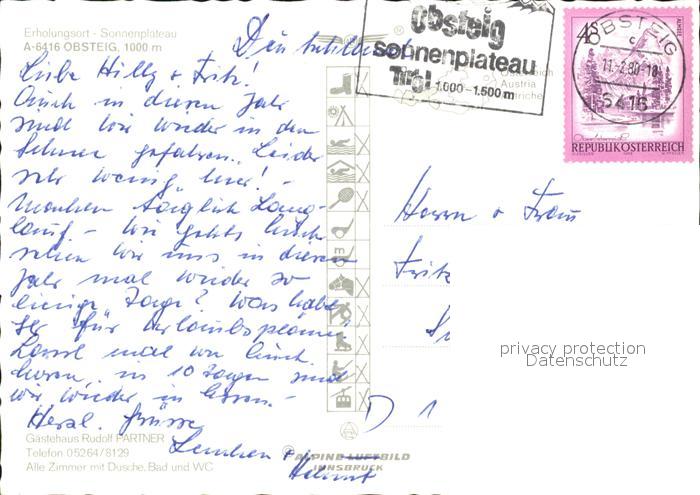 Erholungsort - Sonnenplateau
A-6416 OBSTEIG, 1000 m
Obsteig
sonnenplateau
Tirol 1.000-1.500 m
Austria
OBSTEIG
11.-2.80-18
6416
REPUBLIK ÖSTERREICH
Liebe Hilly + Fritz!
Auch in diesem Jahr
sind wir wieder in den
Schnee gefahren. Leider
sehr wenig hier! -
Machen täglich Lang-
lauf - Wie gehts Euch
sehen wir uns in diesem
Jahr mal wieder so
einige Tage? Was habt
Ihr für Urlaubspläne
Lasst mal von Euch
hören. in 10 Tagen sind
wir wieder in
Herzl. Grüsse
Helmut
Herrn + Frau
Fritz
D 1
privacy protection
Datenschutz
Gästehaus Rudolf PARTNER
Telefon 05264/8129
Alle Zimmer mit Dusche, Bad und WC
ALPINE LUFTBILD
INNSBRUCK